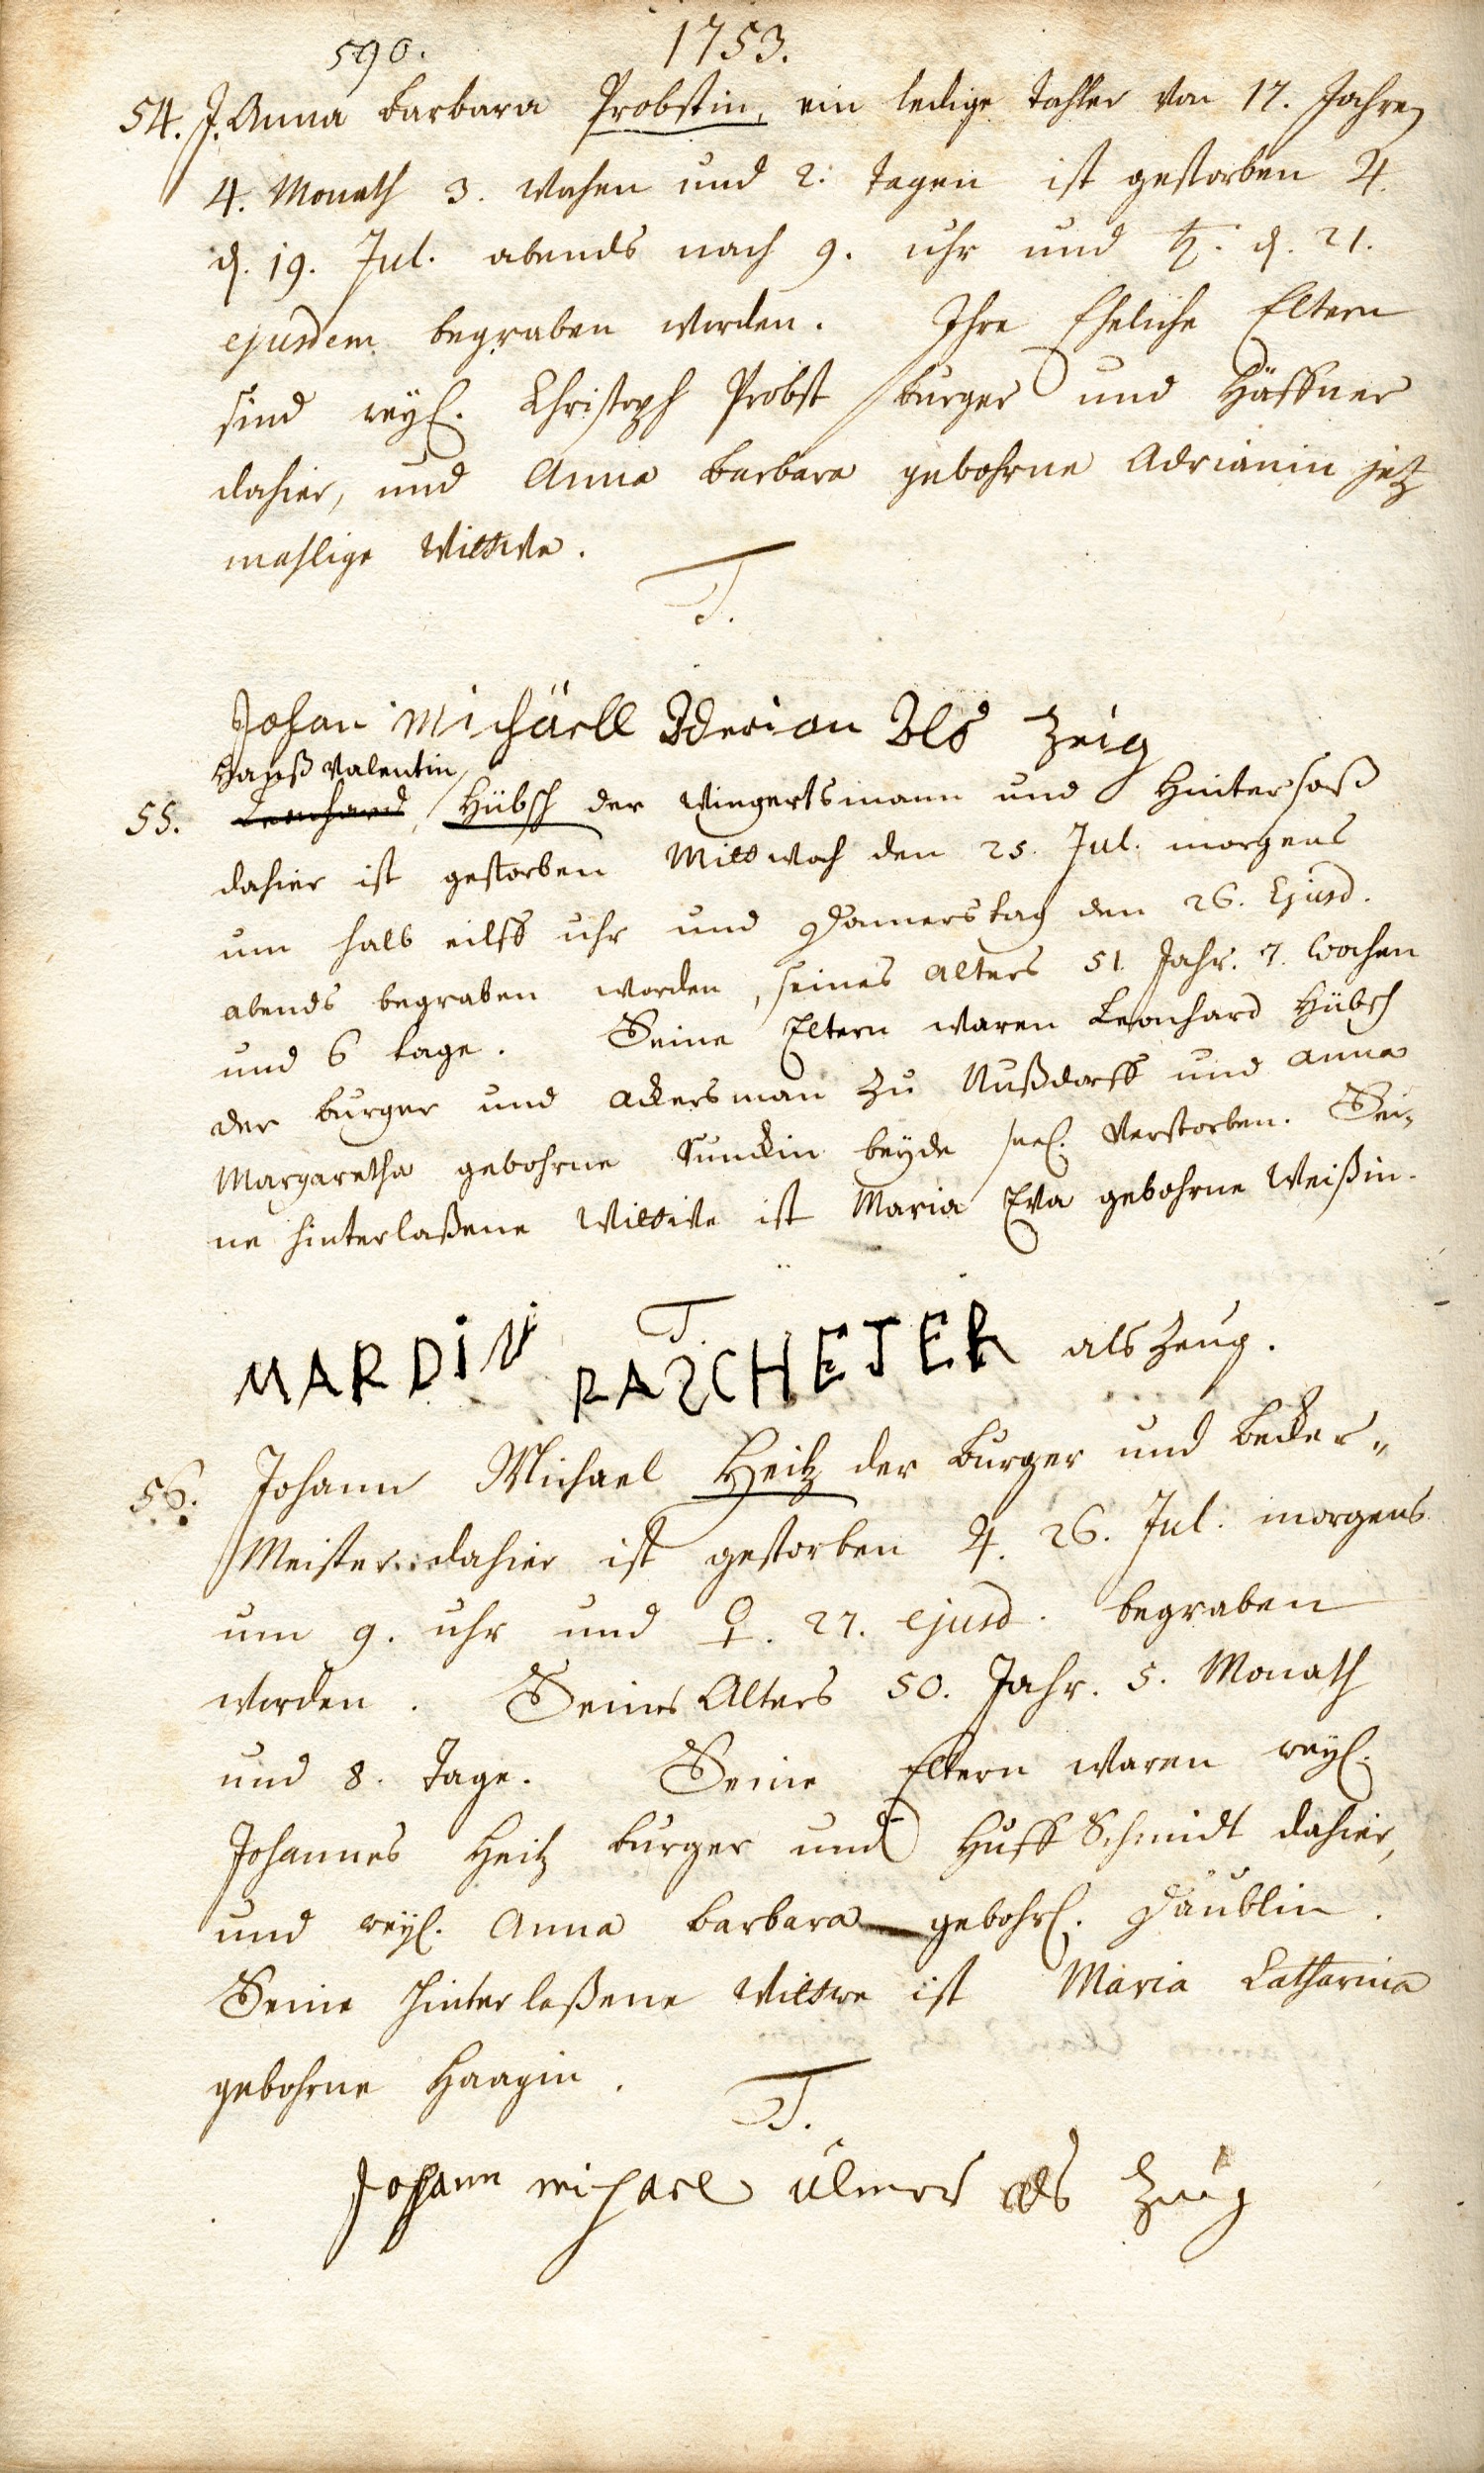 590. 1753.
54. J. Anna Barbara Probstin, ein ledige Tochter von 17. Jahren
4. Monath 3. Wochen und 2. Tagen ist gestorben ♃.
d. 19. Jul. abends nach 9. uhr und ♄. d. 21.
ejusdem begraben worden. Ihre Eheliche Eltern
sind weyl. Christoph Probst burger und Häffner
dahier, und Anna Barbara gebohrne Adrianin jetz
mahlige Wittwe.
T.
Johan Michäell Aderian Als Zeig
Hanß Valentin
55. Leonhard, Hübsch der Wingertsmann und Hintersaß
dahier ist gestorben Mittwoch den 25. Jul. morgens
um halb eilff uhr und Donnerstag den 26. Ejusd.
abends begraben worden, seines alters 51. Jahr. 7. Wochen
und 6 tage. Seine Eltern waren Leonhard Hübsch
der burger und ackersman zu Nußdorff und anna
Margaretha gebohrne Sunckin beyde seel. Verstorben. Sei-
ne hinterlaßene Wittwe ist Maria Eva gebohrne Weißin.
T.
MARDiN RASCHETER als Zeug.
56. Johann Michael Heitz der Burger und Becker-
Meister dahier ist gestorben ♃. 26. Jul. morgens
um 9. uhr und ♀. 27. ejusd. begraben
worden. Seines Alters 50. Jahr. 5. Monath
und 8. Tage. Seine Eltern waren weyl.
Johannes Heitz burger und Huff Schmidt dahier,
und weyl. Anna Barbara gebohrl. Däublin.
Seine hinterlaßene Wittwe ist Maria Catharina
gebohrne Haagin.
T.
Johann michael ülmer als Zeüg